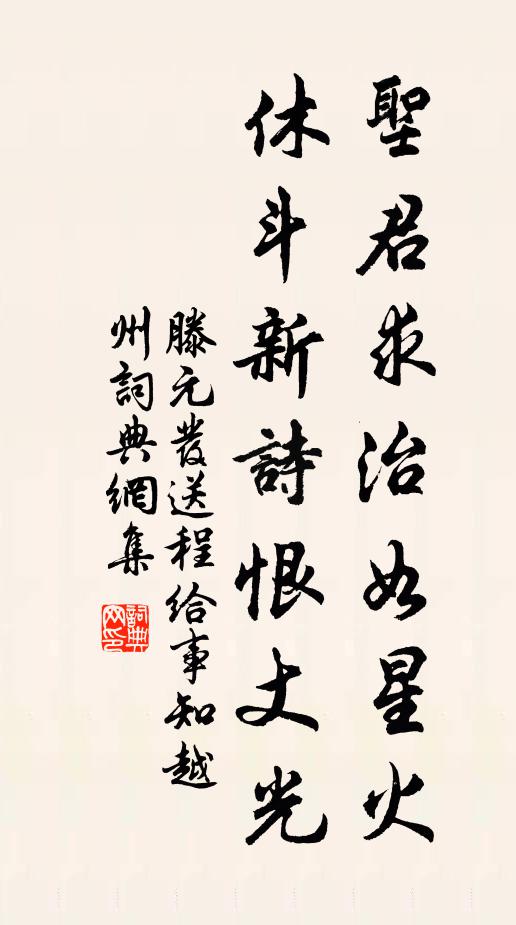 聖君求治如星火
休斗新詩恨丈光
滕元發送程給事知越
州詞典網集
詞典网印